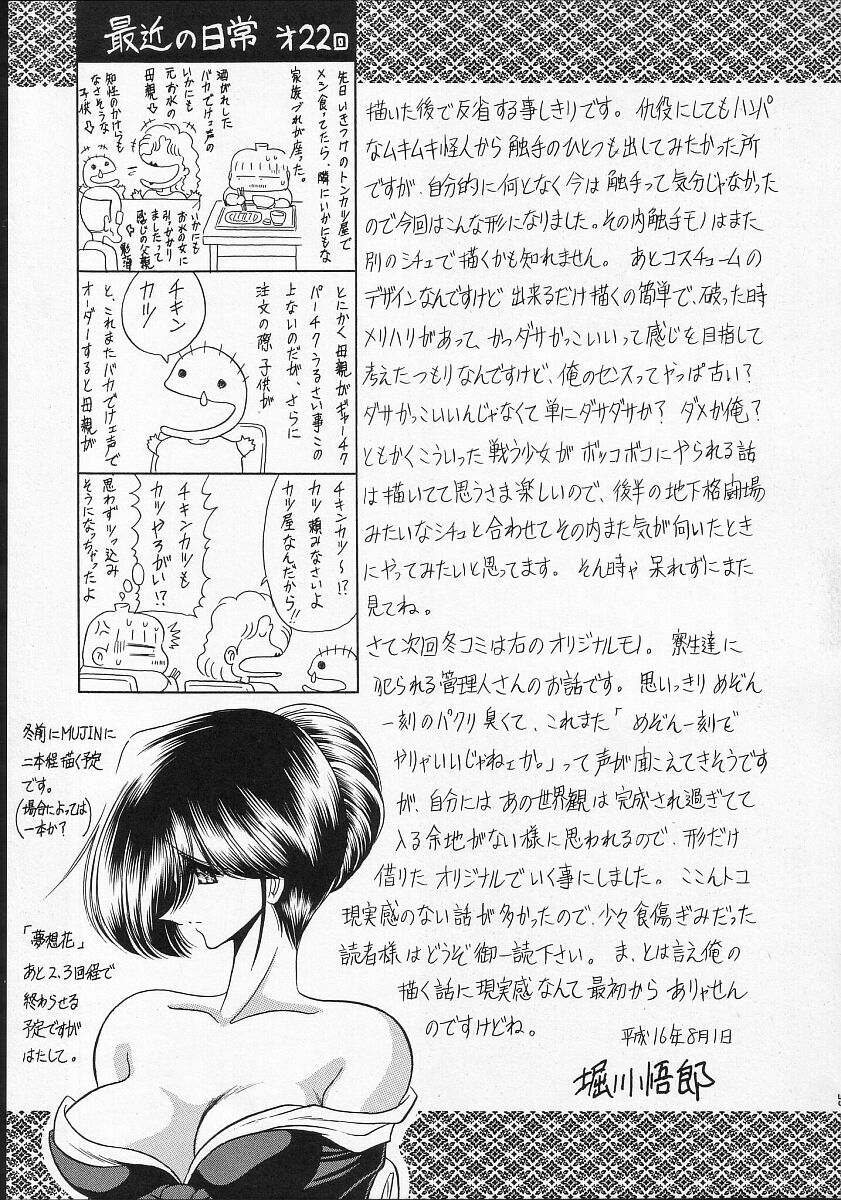 最近の日常 オ22回
先日いきつけのトンカツ屋で
メシ食ってたら、隣にいかにもな
家族づれが座った。
酒がれした
バカでけェ声の
いかにも
元お水の
母親⇨
知性のかけらも
なさそうな
子供⇨
いかにも
お水の女に
引っかかり
ましたって
感じの父親
とにかく母親がギャーチク
パーチクうるさい事この
上ないのだが、さらに
注文の際子供が
チキン
カツ
と、これまたバカでけェ声で
オーダーすると母親が
チキンカツ〜!?
カツ頼みなさいよ
カツ屋なんだから!!
チキンカツも
カツやろがい!?
思わずツッ込み
そうになっちゃったよ
描いた後で反省する事しきりです。仇役にしてもハンパ
なムキムキ怪人から触手のひとつも出してみたかった所
ですが、自分的に何となく今は触手って気分じゃなかった
ので今回はこんな形になりました。その内触手モノはまた
別のシチュで描くかも知れません。 あとコスチュームの
デザインなんですけど出来るだけ描くの簡単で、破った時
メリハリがあって、かつダサかっこいいって感じを目指して
考えたつもりなんですけど、俺のセンスってやっぱ古い?
ダサかっこいいんじゃなくて単にダサダサか? ダメか俺?
ともかくこういった戦う少女がボッコボコにやられる話
は描いてて思うさま楽しいので、後半の地下格闘場
みたいなシチュと合わせてその内また気が向いたとき
にやってみたいと思ってます。そん時ゃ呆れずにまた
見てね。
さて次回冬コミは右のオリジナルモノ。寮生達に
犯られる管理人さんのお話です。思いっきりめぞん
一刻のパクリ臭くて、これまた「めぞん一刻で
やりゃいいじゃねェか。」って声が聞こえてきそうです
が、自分にはあの世界観は完成され過ぎてて
入る余地がない様に思われるので、形だけ
借りたオリジナルでいく事にしました。ここんトコ
現実感のない話が多かったので、少々食傷ぎみだった
読者様はどうぞ御一読下さい。ま、とは言え俺の
描く話に現実感なんて最初からありゃせん
のですけどね。
平成16年8月1日
堀川悟郎
冬前にMUJINに
二本程描く予定
です。
(場合によっては
一本か?)
「夢想花」
あと2、3回程で
終わらせる
予定ですが
はたして。